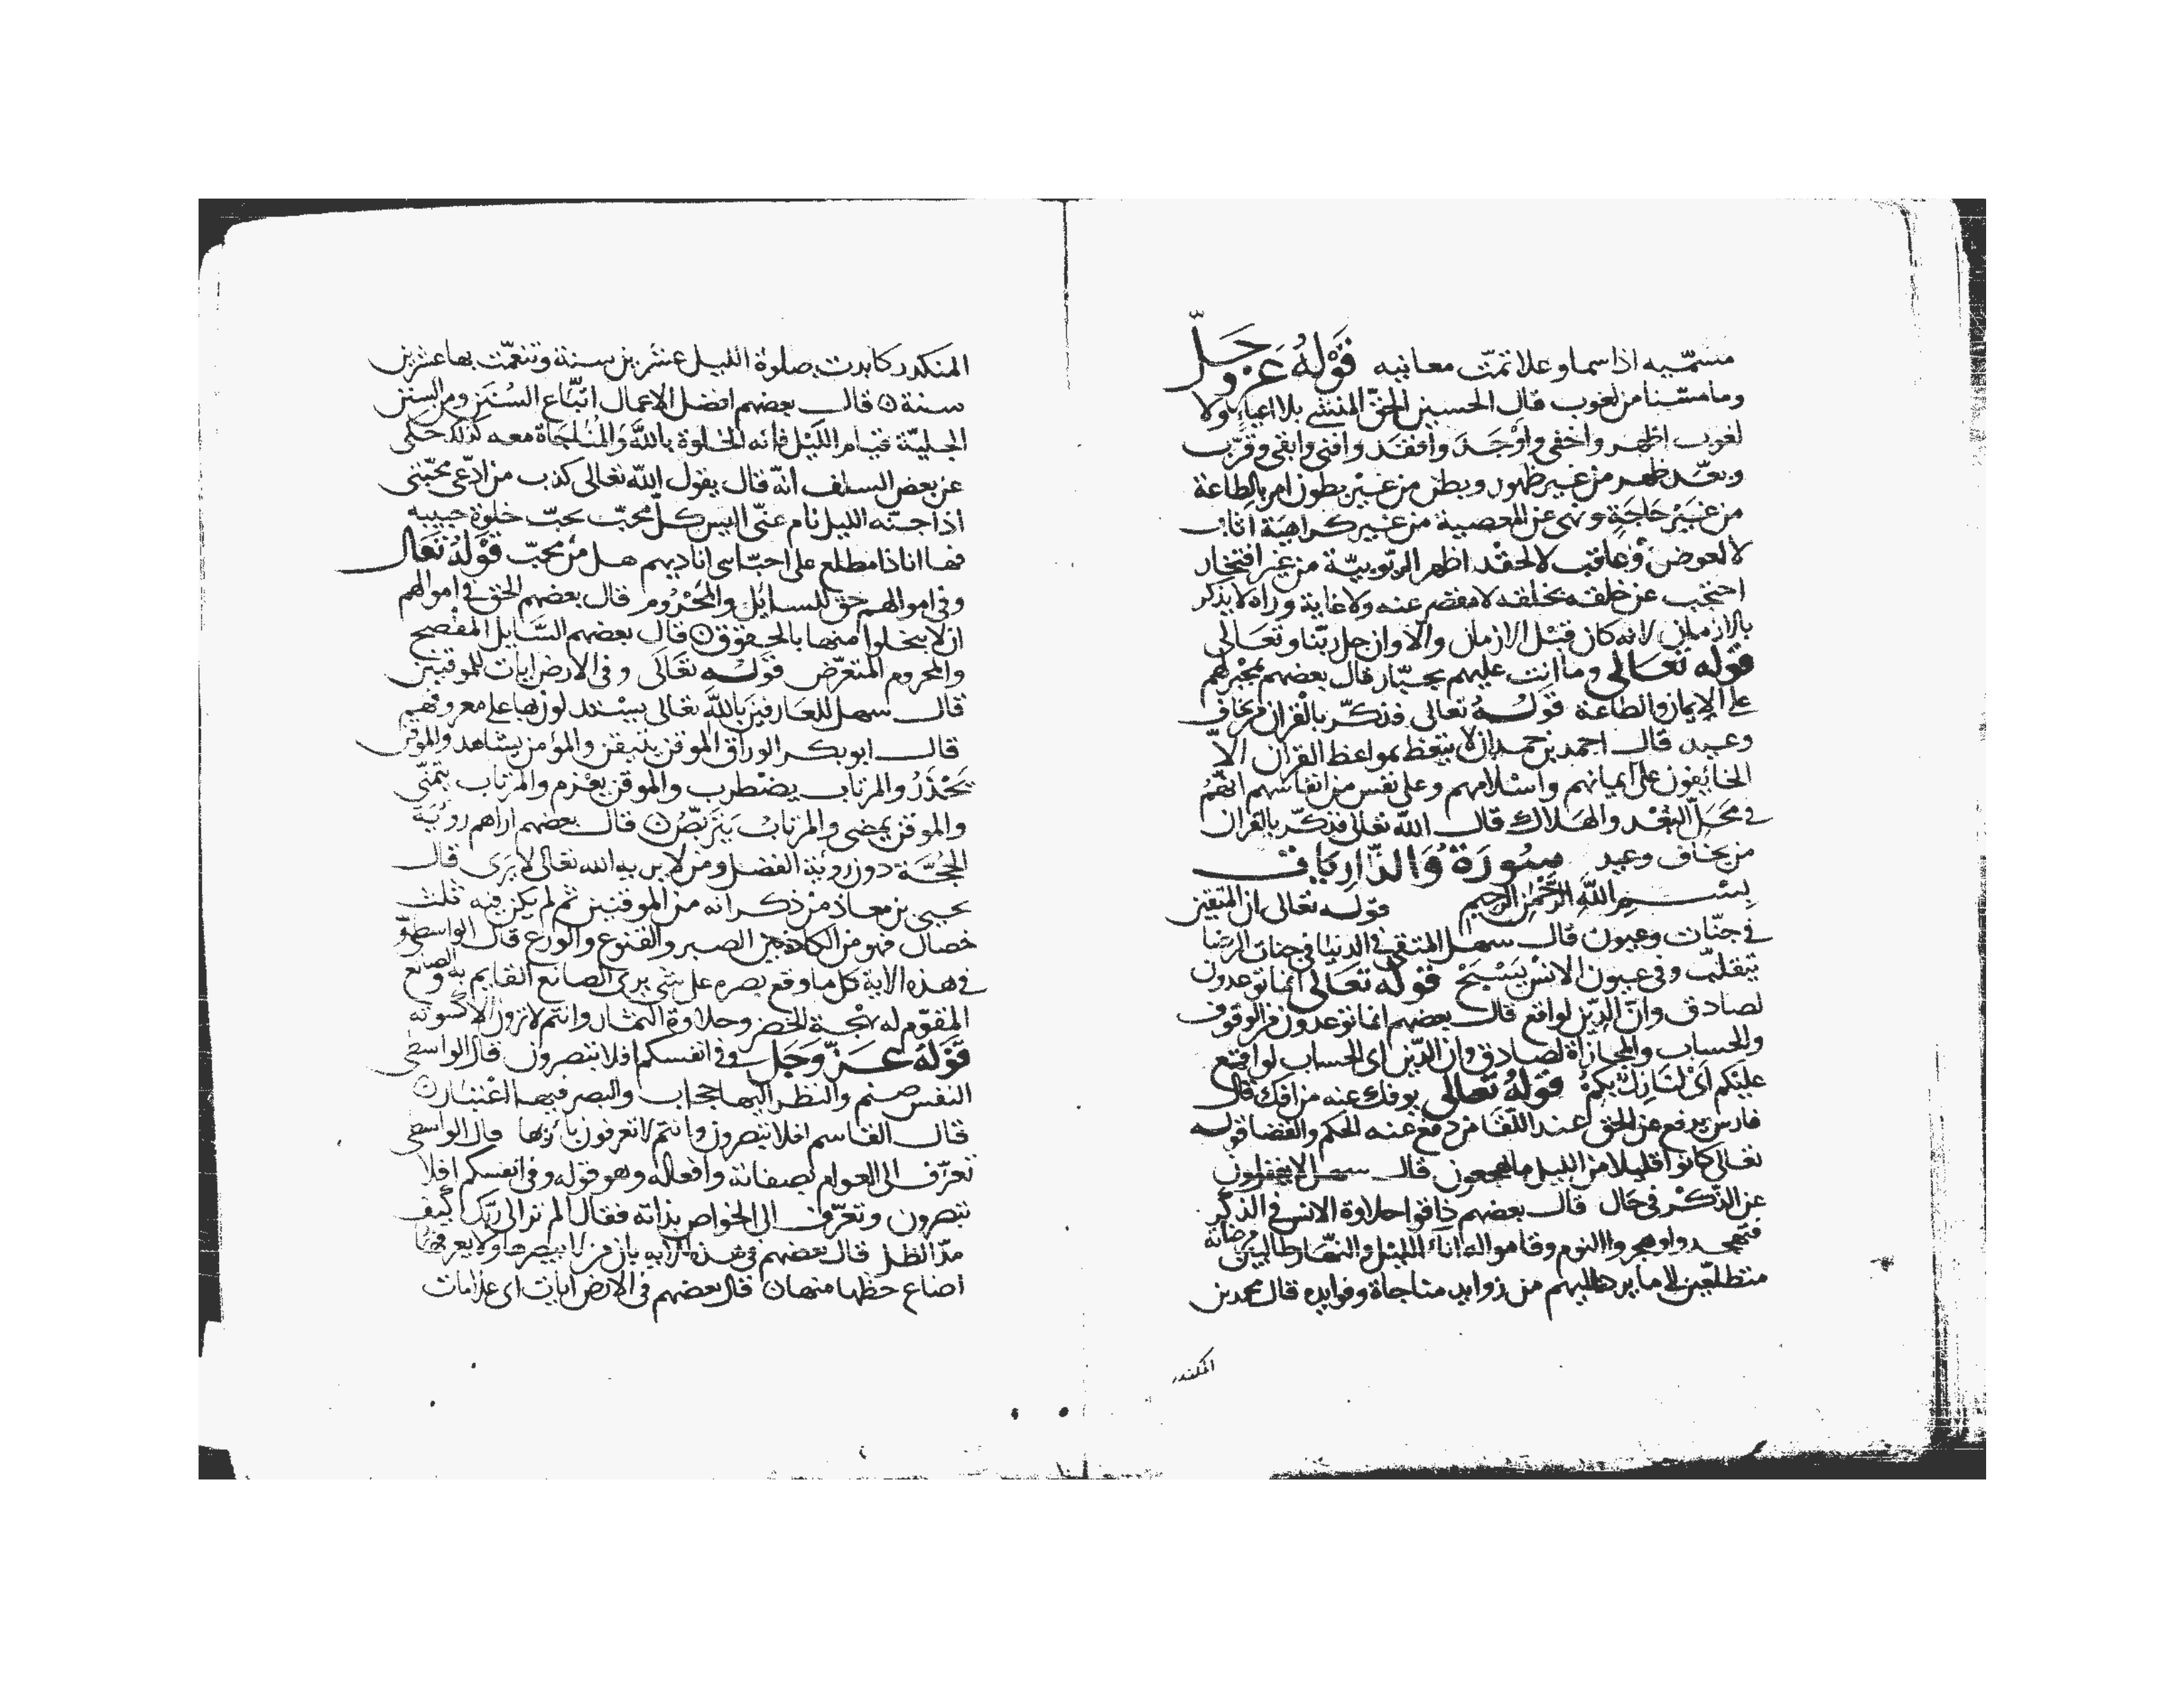 مسمّيه اذا سما وعلا تمّت معانيه قَوْلهُ عَزّ وجَلّ
وما مسّنا من لغوب قال الحسين الحقّ المنشئ بلا اعياء ولا
لغوب اظهر واخفى واوجَدَ وافقَد وافنى وابقى وقرّب
وبعّد ظهر من غير ظهور وبطن من غيْر بطون امر بالطاعة
من غَيْر حَاجَةٍ ونهى عن المعصية من غير كراهيَة اثاب
لا لعوض وعاقب لا لحقْد اظهر الربّوبيّة من غير افتخار
احتجب عن خلقه بخلقه لا مفصح عنه ولا غاية وراه لا يذكر
بالازمان لانه كان قبْل الازمان والاوان جل ربّنا وتعَالى
قوله تعَالى وما انت عليهم بجبّار قال بعضهم بمجْبرلهم
على الايمان والطاعة قولهُ تعالى فذكّر بالقران من يخاف
وعيد قال احمد بن حمدان لا يتّعظ بمواعظ القران الاّ
الخائفون على ايمانهم واسْلامهم وعلى نفس من انفاسهم انّهُم
في محَلّ البُعْد والهَلاك قال اللّه تعالى فذكّر بالقران
من يخاف وعيد سُورَةُ وَالذّارِيَات
بِسْم اللّهِ الرَّحْمٰن الرَّحِيم قوله تعالى ان المتّقين
في جنّات وعيون قال سهل المتّقى في الدنيا في جنات الرضا
يتقلّب وفى عيون الانْس يَسْبَحْ قوله تعَالى انّما توعدون
لصادق وانّ الدّين لواقع قال بعضهم انما توعدون من الوقوف
والحساب والمجازاة لصادق وان الدّين اى الحساب لواقع
عليْكم اىْ لنَازِلٌ بكمْ قولهُ تعالى يوفك عنه من افك قال
فارس يدفع عن الحق عند اللّقَا من دفع عنه الحكم والقضا قوله
تعالى كانوا قليلا من الليل ما يهجعون قال سهل لا يغفلون
عن الذّكْر فى حَال قال بعضهم ذاقوا حلاوة الانس في الذكْر
فتهجدوا وهجروا النوم وقاموا له اناءَ اللَيْل والنهَار طالبين مرضاته
متطلّعين لما يرد عليهم من زوايد مناجاة وفوايده قال محمد بن
المنكدر
المنكدر كابدت بصلوة الليل عشرين سنة وتنعّمت بها عشرين
سنة قال بعضهم افضل الاعمال اتّباع السُنَن ومن السنن
الجليّة قيام اللَيْل فانّه الخلوة باللّه وَالمُنَاجَاة معه كذلك حكى
عن بعض السلف انّه قال يقول اللّه تعالى كذب من ادّعى محبّتى
اذا جنّه الليل نام عنّى اليس كلّ محبّ يحبّ خلوة حبيبه
فها انا ذا مطلع على احبّاى اناديهم هل من محبّ قَوْلهُ تعَالى
وفى اموالهم حق للسائل والمحْرُوم قال بعضهم الحق في اموالهم
ان لا يبخلوا منها بالحقوق قال بعضهم السّايل المفصح
والمحروم المتعرّض قولُه تعَالَى وفى الارض ايات للموقنين
قال سهل للعَارفين باللّه تعالى يسْتدلون بها على معروفهم
قال ابو بكر الوراق الموقن يتيقن والمؤمن يشاهد والموقن
يَحْذَرُ والمرتاب يضْطرب والموقن يعْزم والمرتاب يتمنّى
والموقن يمضى والمرتابُ يَتَرَبّصُ قال بعضهم اراهم رويَة
الحُجَّة دون روية الفضل ومن لا يريه الله تعالى لا يَرَى قال
يحيى بن معاذ من ذكر انّه من الموقنين ثم لم يكن فيه ثلث
خصال فهو من الكاذبين الصبر والقنوع والورع قال الواسطىّ
في هذه الاية كل ما وقع بصره على شئ يرى الصانع القايم به والصانع
المقوّم له بهْجة الخضر وحلاوة الثمار وانتم لا ترون الا كسوته
قَوْلهُ عَزّ وَجَل وفى انفسكم افلا تبصرون قال الواسطى
النفس صنم والنظر اليها حجاب والبصر فيها اعْتبار
قال القاسم افلا تبصرون وانتم لا تعرفون بارئها قال الواسطى
تعرّف الى العوام بصفاته وافعاله وهو قوله وفى انفسكم افلا
تبصرون وتعرّف الى الخواص بذاته فقال الم تر الى ربّك كيْف
مدّ الظل قال بعضهم فى هذه الاية بان من لا يبصرها ولا يعرفها
اضاع حظّها منها قال بعضهم فى الارض ايات اى علامات